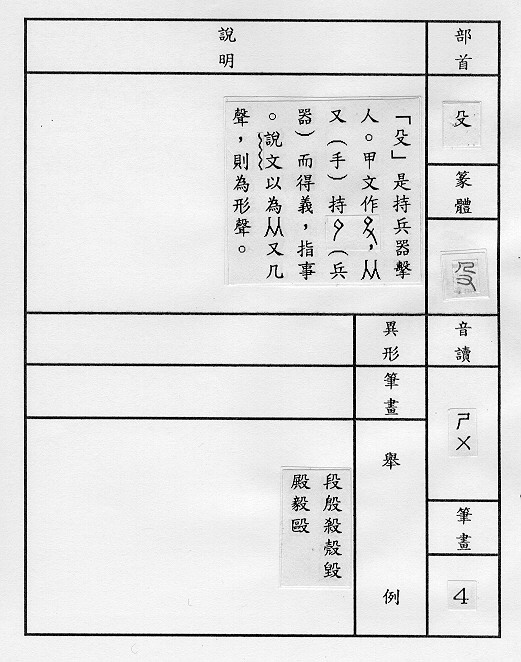 部首
殳
篆體
音讀
ㄕㄨ
筆畫
4
說明
「殳」是持兵器擊
人。甲文作，从
又（手）持（兵
器）而得義，指事
。說文以為从又几
聲，則為形聲。
異形
筆畫
舉例
段殷殺殼毀
殿毅毆